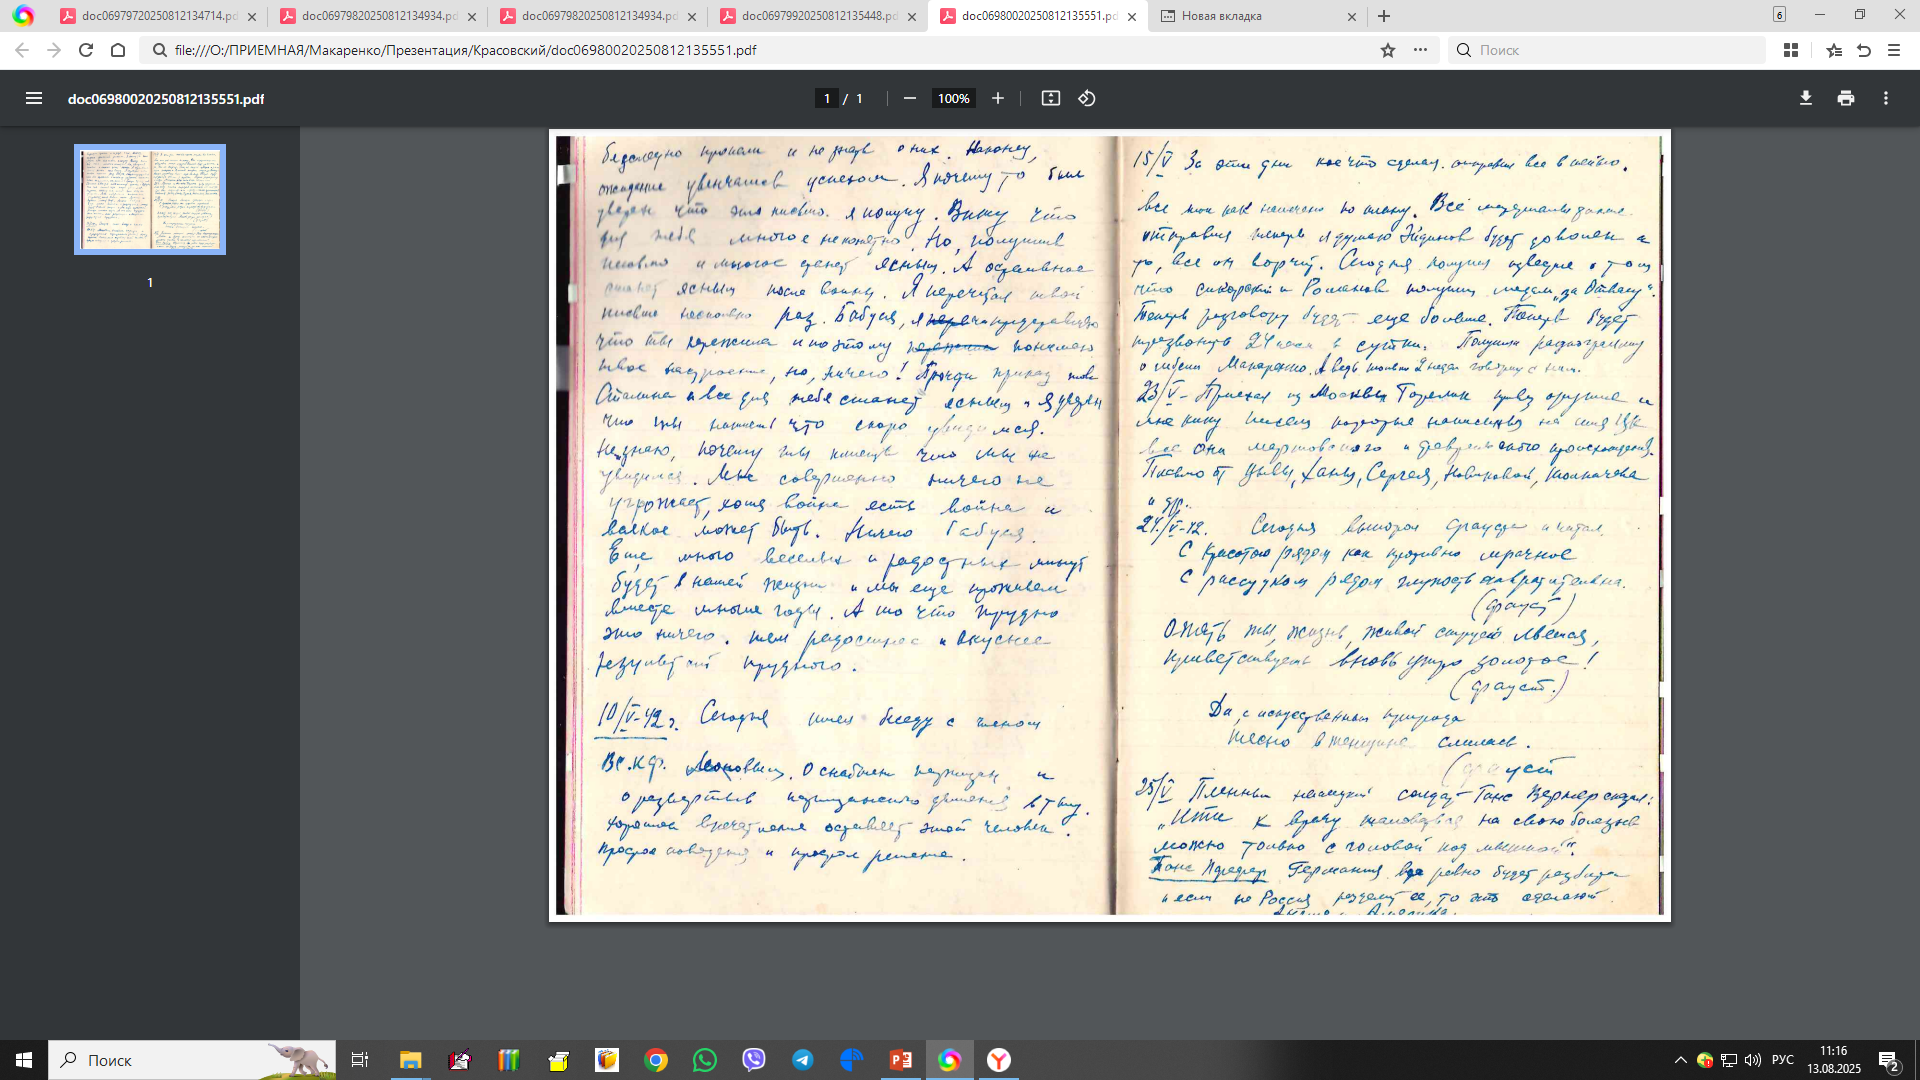 doc06979720250812134714.pd
doc06979820250812134934.pd
doc06979820250812134934.pd
doc06979920250812135448.pd
doc06980020250812135551.pd
Новая вкладка
6
file:///O:/ПРИЕМНАЯ/Макаренко/Презентация/Красовский/doc06980020250812135551.pdf
Поиск
doc06980020250812135551.pdf
1 / 1
100%
1
бесследно пропали и не знаю о них. Наконец,
ожидание увенчалось успехом. Я почему то был
уверен что это письмо я получу. Вижу что
для тебя многое непонятно. Но, получив
письмо и многое станет ясным. А остальное
станет ясным после войны. Я перечитал твой
письмо несколько раз. Бабуся, я представляю
что ты пережила и поэтому понимаю
твое настроение, но, ничего! Прочти приказ тов.
Сталина и все для тебя станет ясным и Я уверен
что ты поймешь что скоро увидимся.
Не знаю, почему ты пишешь что мы не
увидимся. Мне совершенно ничего не
угрожает, хотя война есть война и
всякое может быть. Ничего бабуся.
Еще много веселых и радостных минут
будет в нашей жизни и мы еще проживем
вместе многие годы. А то что трудно
это ничего. тем радостнее и вкуснее
результат трудного.
10/V-42г. Сегодня имел беседу с членом
В.С.К.Ф. О снабжен партизан и
о развертыв партизанского движения в тылу.
Хорошее впечатление оставляет этот человек.
Простое поведение и простое решение.
15/V За эти дни кое что сделал. отправил все
все как намечено по плану. Все материалы
отправил теперь я думаю Эйдинов будет доволен а
то, все он ворчит. Сегодня получил известие о том
что Сикорский и Романов получили медали „за Отвагу“.
Теперь разговору будет еще больше. Теперь будет
трезвонить 24 часа в сутки. Получил радиограмму
о гибели Макаренко. А ведь только 2 недели говорил с ним.
23/V- Приехал из Москвы Горелик привез оружие и
мне кипу писем которые написаны на имя ЦК
все они мартовского и февральского происхождения.
Письмо от Цывы, Ханы, Сергея, Новиковой, Толкачева
и др.
24/V-42. Сегодня вытащил Фауста и читал.
С красотою рядом как противно мрачное
С рассудком рядом глупость отвратительна.
(Фауст)
Опять ты, жизнь, живой струею льешься,
приветствуешь вновь утро золотое!
(Фауст.)
Да, с искусственным природа
тесно в женщине слилась.
(Фауст
25/V Пленный немецкий солдат-Ганс Вернер сказал:
„Итти к врачу жаловаться на свою болезнь
можно только с головой под мышкой“.
Германия все равно будет разбита
и если не Россия разделит ее, то это сделают
Англия и Америка.
Поиск
РУС
11:16
13.08.2025
2